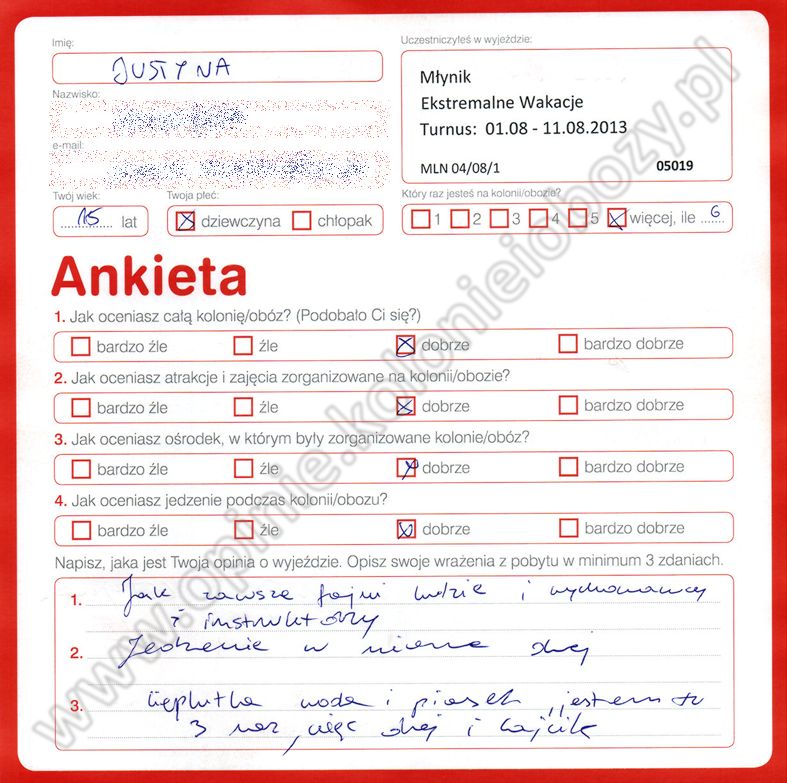 Imię:
JUSTYNA
Nazwisko:
e-mail:
Twój wiek:
15 lat
Twoja płeć:
dziewczyna chłopak
Uczestniczyłeś w wyjeździe:
Młynik
Ekstremalne Wakacje
Turnus: 01.08 - 11.08.2013
MLN 04/08/1 05019
Który raz jesteś na kolonii/obozie?
1 2 3 4 5 więcej, ile 6
Ankieta
1. Jak oceniasz całą kolonię/obóz? (Podobało Ci się?)
bardzo źle źle dobrze bardzo dobrze
2. Jak oceniasz atrakcje i zajęcia zorganizowane na kolonii/obozie?
bardzo źle źle dobrze bardzo dobrze
3. Jak oceniasz ośrodek, w którym były zorganizowane kolonie/obóz?
bardzo źle źle dobrze bardzo dobrze
4. Jak oceniasz jedzenie podczas kolonii/obozu?
bardzo źle źle dobrze bardzo dobrze
Napisz, jaka jest Twoja opinia o wyjeździe. Opisz swoje wrażenia z pobytu w minimum 3 zdaniach.
1. Jak zawsze fajni ludzie i wychowawcy
i instruktorzy
2. Jedzenie w miarę okej
3. Cieplutka woda i piasek, jestem tu
3 raz, więc okej i
www.opinie.kolonieiobozy.pl